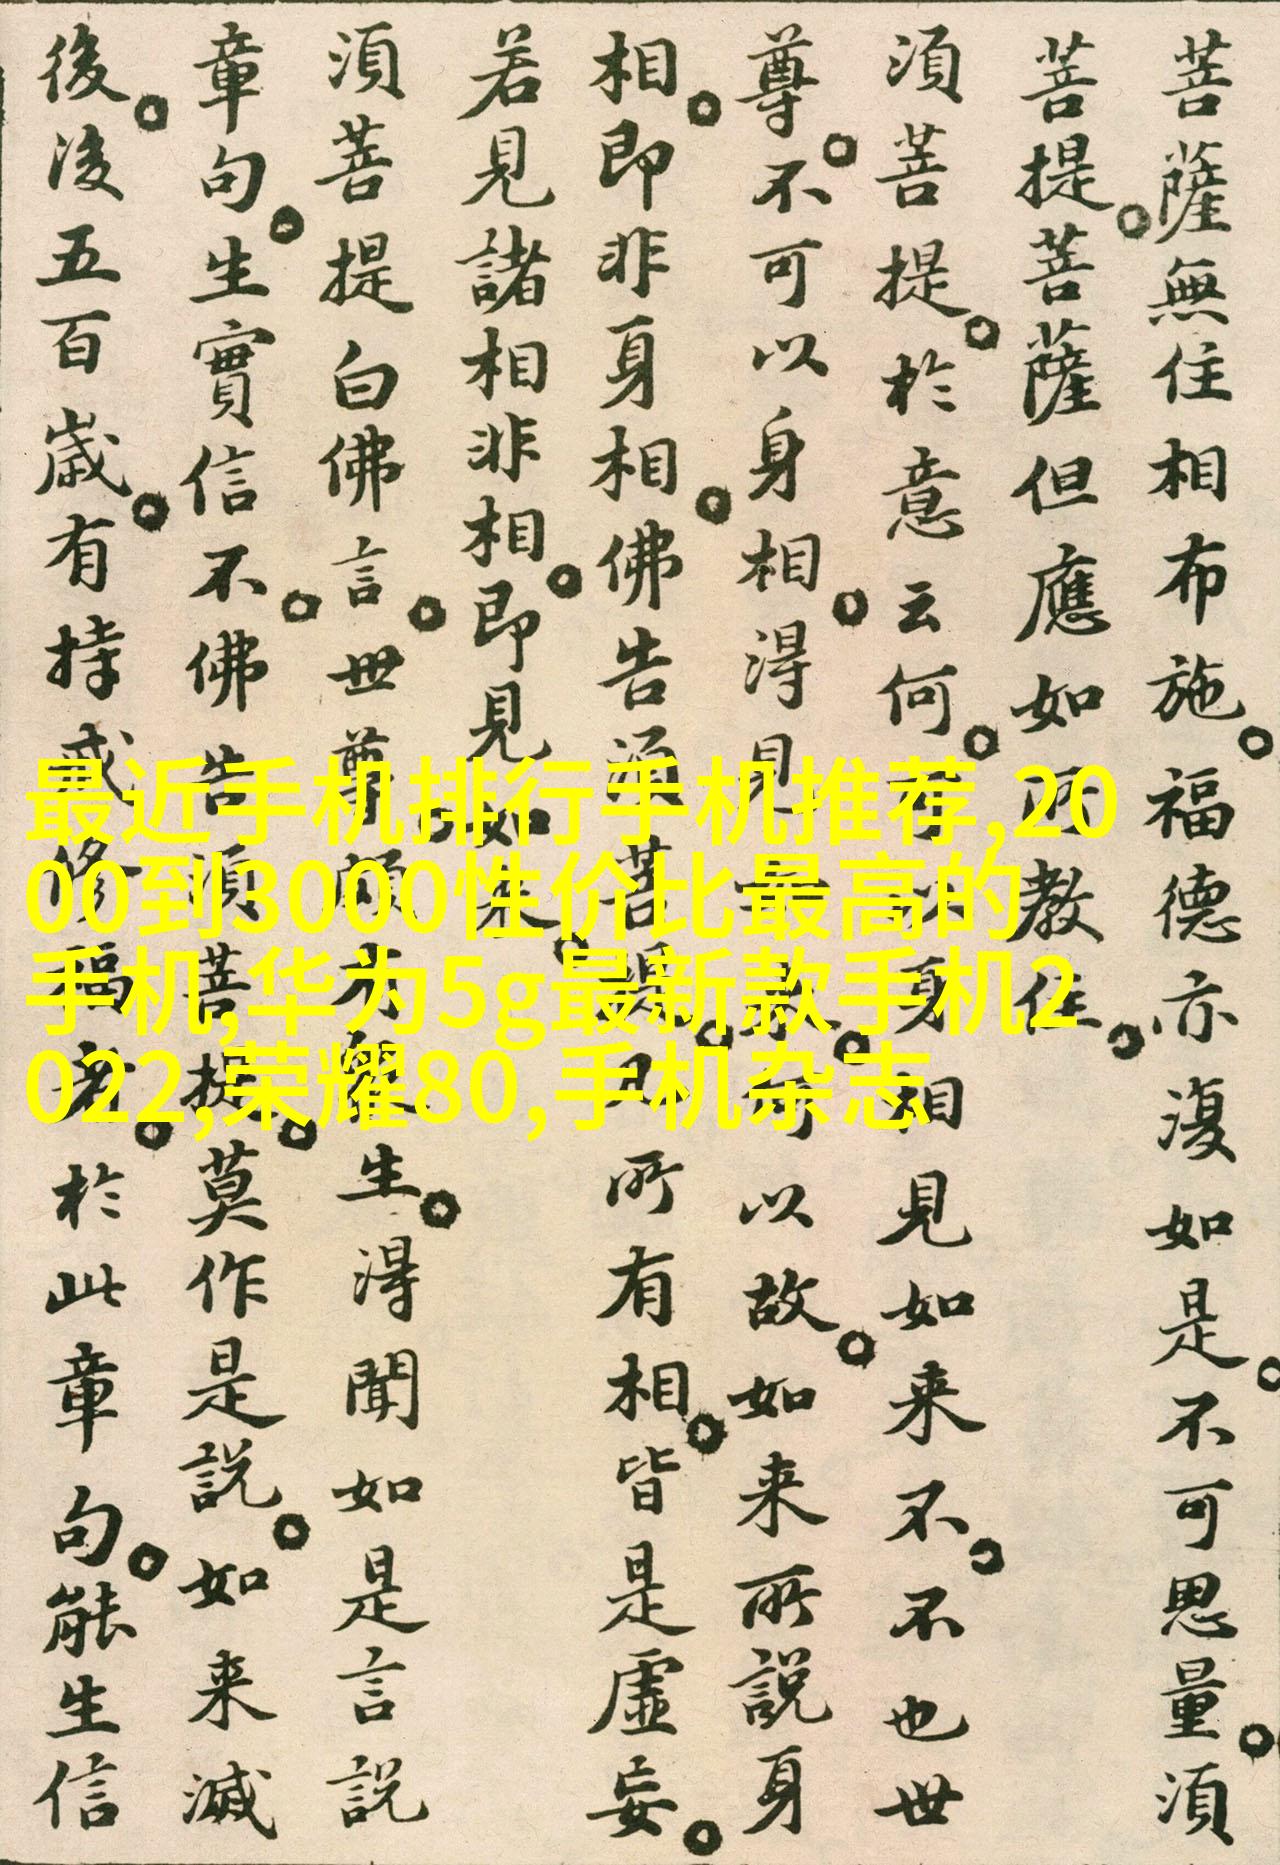 菩薩無住相布施。福德亦復如是。不可思量。須
菩提。菩薩但應如所教住。
須菩提。於意云何。可以身相見如来不。不也世
尊。不可以身相。得見如来。何以故。如来所說身
相。即非身相。佛告須菩提。凡所有相。皆是虛妄。
若見諸相非相。即見如来。
須菩提白佛言。世尊。頗有衆生。得聞如是言說
章句。生實信不。佛告須菩提。莫作是說。如来滅
後。後五百歲。有持戒修福者。於此章句。能生信
最近手机排行手机推荐,20
00到3000性价比最高的
手机,华为5g最新款手机2
022,荣耀80,手机杂志